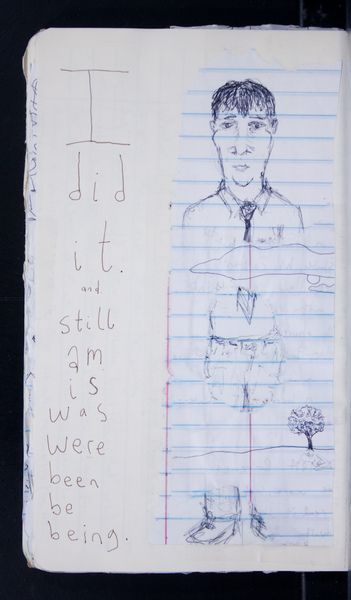 I
did
it.
and
still
am
is
was
were
been
be
being.